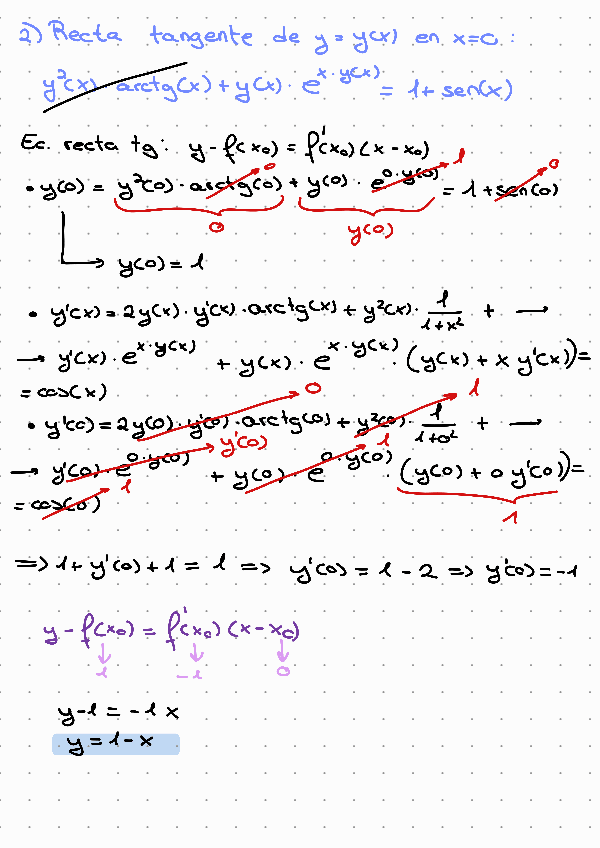 2) Recta tangente de y = y(x) en x=0 :
y²(x) · arctg(x) + y(x) · e^{x·y(x)} = 1 + sen(x)
Ec. recta tg: y - f(x₀) = f'(x₀)(x - x₀)
• y(0) = y²(0) · arctg(0) + y(0) · e^{0·y(0)} = 1 + sen(0)
0 1 0
0 y(0)
→ y(0) = 1
• y'(x) = 2y(x) · y'(x) · arctg(x) + y²(x) · 1/(1+x²) + →
→ y'(x) · e^{x·y(x)} + y(x) · e^{x·y(x)} · (y(x) + x y'(x)) =
= cos(x)
0 1
• y'(0) = 2y(0) · y'(0) · arctg(0) + y²(0) · 1/(1+0²) + →
y'(0) 1
→ y'(0) · e^{0·y(0)} + y(0) · e^{0·y(0)} · (y(0) + 0 y'(0)) =
= cos(0) 1 1
=> 1 + y'(0) + 1 = 1 => y'(0) = 1 - 2 => y'(0) = -1
y - f(x₀) = f'(x₀)(x - x₀)
↓ ↓ ↓
1 -1 0
y-1 = -1 x
y = 1 - x